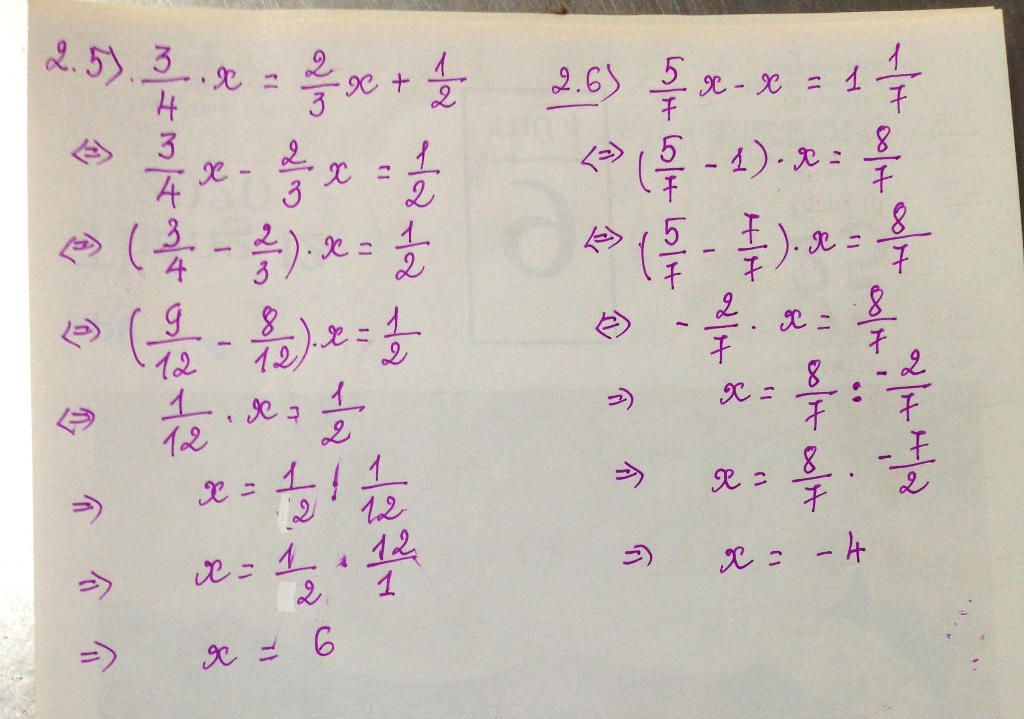 2.5) 3/4 · x = 2/3 x + 1/2
⇔ 3/4 x - 2/3 x = 1/2
⇔ (3/4 - 2/3) · x = 1/2
⇔ (9/12 - 8/12) · x = 1/2
⇔ 1/12 · x = 1/2
⇒ x = 1/2 : 1/12
⇒ x = 1/2 · 12/1
⇒ x = 6
2.6) 5/7 x - x = 1 1/7
⇔ (5/7 - 1) · x = 8/7
⇔ (5/7 - 7/7) · x = 8/7
⇔ - 2/7 · x = 8/7
⇒ x = 8/7 : -2/7
⇒ x = 8/7 · -7/2
⇒ x = -4